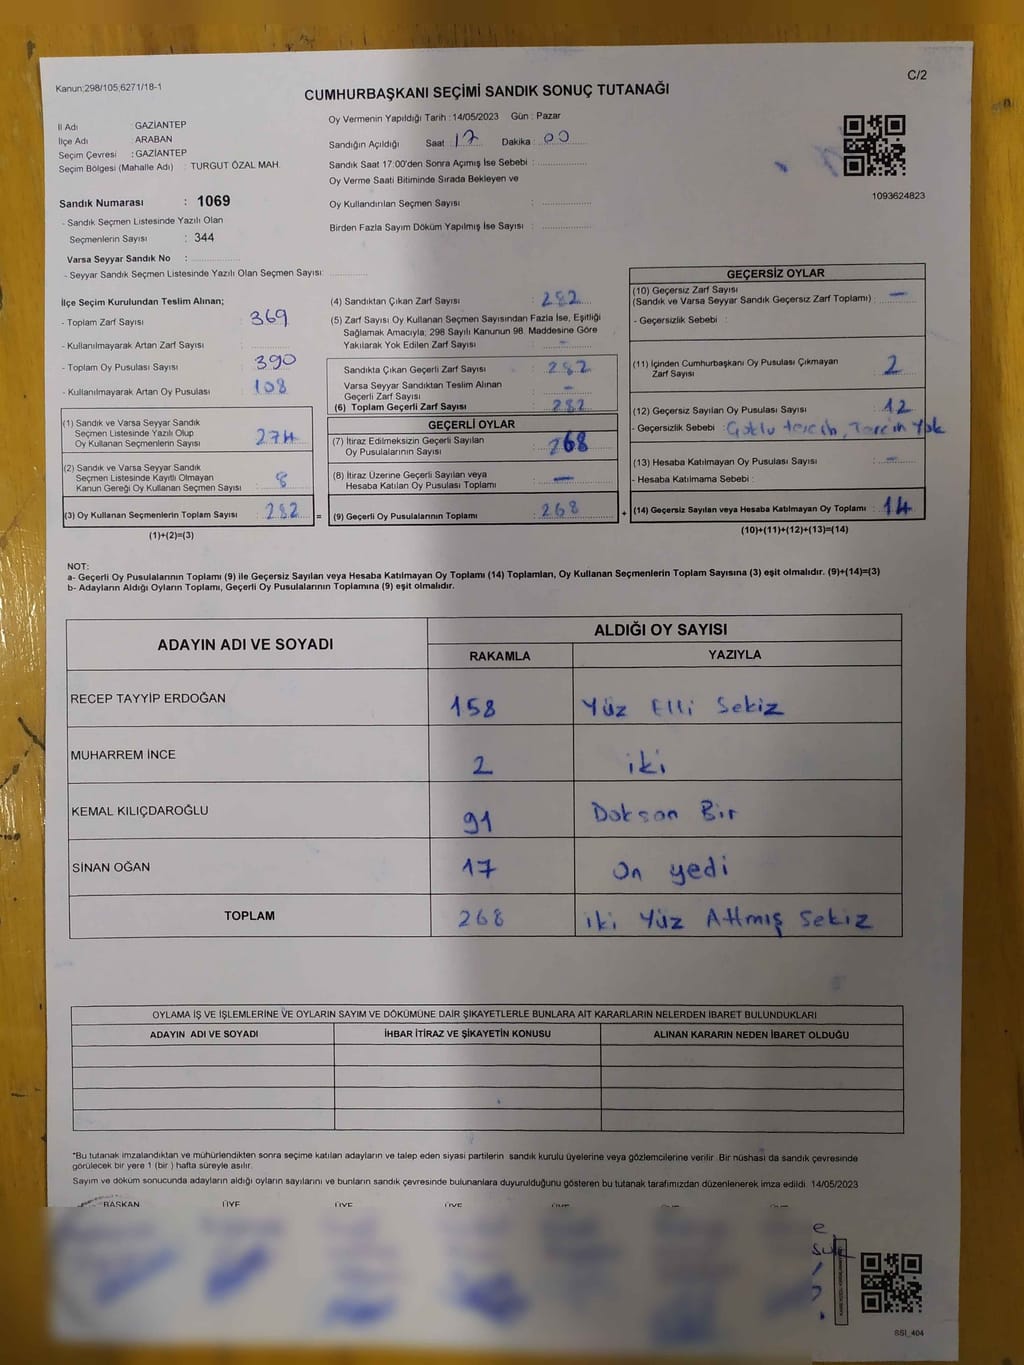 Kanun:298/105,6271/18-1
C/2
CUMHURBAŞKANI SEÇİMİ SANDIK SONUÇ TUTANAĞI
İl Adı : GAZİANTEP
İlçe Adı : ARABAN
Seçim Çevresi : GAZİANTEP
Seçim Bölgesi (Mahalle Adı) : TURGUT ÖZAL MAH.
Oy Vermenin Yapıldığı Tarih : 14/05/2023 Gün : Pazar
Sandığın Açıldığı Saat : 17 Dakika : 00
Sandık Saat 17:00'den Sonra Açımış İse Sebebi :
Oy Verme Saati Bitiminde Sırada Bekleyen ve
Oy Kullandırılan Seçmen Sayısı :
Birden Fazla Sayım Döküm Yapılmış İse Sayısı :
1093624823
Sandık Numarası : 1069
- Sandık Seçmen Listesinde Yazılı Olan
Seçmenlerin Sayısı : 344
Varsa Seyyar Sandık No :
- Seyyar Sandık Seçmen Listesinde Yazılı Olan Seçmen Sayısı:
İlçe Seçim Kurulundan Teslim Alınan;
- Toplam Zarf Sayısı : 369
- Kullanılmayarak Artan Zarf Sayısı :
- Toplam Oy Pusulası Sayısı : 390
- Kullanılmayarak Artan Oy Pusulası : 108
(1) Sandık ve Varsa Seyyar Sandık
Seçmen Listesinde Yazılı Olup
Oy Kullanan Seçmenlerin Sayısı : 274
(2) Sandık ve Varsa Seyyar Sandık
Seçmen Listesinde Kayıtlı Olmayan
Kanun Gereği Oy Kullanan Seçmen Sayısı : 8
(3) Oy Kullanan Seçmenlerin Toplam Sayısı : 282 =
(1)+(2)=(3)
(4) Sandıktan Çıkan Zarf Sayısı : 282
(5) Zarf Sayısı Oy Kullanan Seçmen Sayısından Fazla İse, Eşitliği
Sağlamak Amacıyla; 298 Sayılı Kanunun 98. Maddesine Göre
Yakılarak Yok Edilen Zarf Sayısı : -
Sandıkta Çıkan Geçerli Zarf Sayısı : 282
Varsa Seyyar Sandıktan Teslim Alınan
Geçerli Zarf Sayısı : -
(6) Toplam Geçerli Zarf Sayısı : 282
GEÇERLİ OYLAR
(7) İtiraz Edilmeksizin Geçerli Sayılan
Oy Pusulalarının Sayısı : 268
(8) İtiraz Üzerine Geçerli Sayılan veya
Hesaba Katılan Oy Pusulası Toplamı : -
(9) Geçerli Oy Pusulalarının Toplamı : 268 +
GEÇERSİZ OYLAR
(10) Geçersiz Zarf Sayısı
(Sandık ve Varsa Seyyar Sandık Geçersiz Zarf Toplamı) : -
- Geçersizlik Sebebi :
(11) İçinden Cumhurbaşkanı Oy Pusulası Çıkmayan
Zarf Sayısı : 2
(12) Geçersiz Sayılan Oy Pusulası Sayısı : 12
- Geçersizlik Sebebi : Çoklu tercih, Tercih Yok
(13) Hesaba Katılmayan Oy Pusulası Sayısı : -
- Hesaba Katılmama Sebebi :
(14) Geçersiz Sayılan veya Hesaba Katılmayan Oy Toplamı : 14
(10)+(11)+(12)+(13)=(14)
NOT:
a- Geçerli Oy Pusulalarının Toplamı (9) ile Geçersiz Sayılan veya Hesaba Katılmayan Oy Toplamı (14) Toplamları, Oy Kullanan Seçmenlerin Toplam Sayısına (3) eşit olmalıdır. (9)+(14)=(3)
b- Adayların Aldığı Oyların Toplamı, Geçerli Oy Pusulalarının Toplamına (9) eşit olmalıdır.
ADAYIN ADI VE SOYADI
ALDIĞI OY SAYISI
RAKAMLA YAZIYLA
RECEP TAYYİP ERDOĞAN 158 Yüz Elli Sekiz
MUHARREM İNCE 2 iki
KEMAL KILIÇDAROĞLU 91 Doksan Bir
SİNAN OĞAN 17 On yedi
TOPLAM 268 iki Yüz Altmış Sekiz
OYLAMA İŞ VE İŞLEMLERİNE VE OYLARIN SAYIM VE DÖKÜMÜNE DAİR ŞİKAYETLERLE BUNLARA AİT KARARLARIN NELERDEN İBARET BULUNDUKLARI
ADAYIN ADI VE SOYADI İHBAR İTİRAZ VE ŞİKAYETİN KONUSU ALINAN KARARIN NEDEN İBARET OLDUĞU
*Bu tutanak imzalandıktan ve mühürlendikten sonra seçime katılan adayların ve talep eden siyasi partilerin sandık kurulu üyelerine veya gözlemcilerine verilir. Bir nüshası da sandık çevresinde
görülecek bir yere 1 (bir ) hafta süreyle asılır.
Sayım ve döküm sonucunda adayların aldığı oyların sayılarını ve bunların sandık çevresinde bulunanlara duyurulduğunu gösteren bu tutanak tarafımızdan düzenlenerek imza edildi. 14/05/2023
BAŞKAN ÜYE ÜYE ÜYE
SSI_404